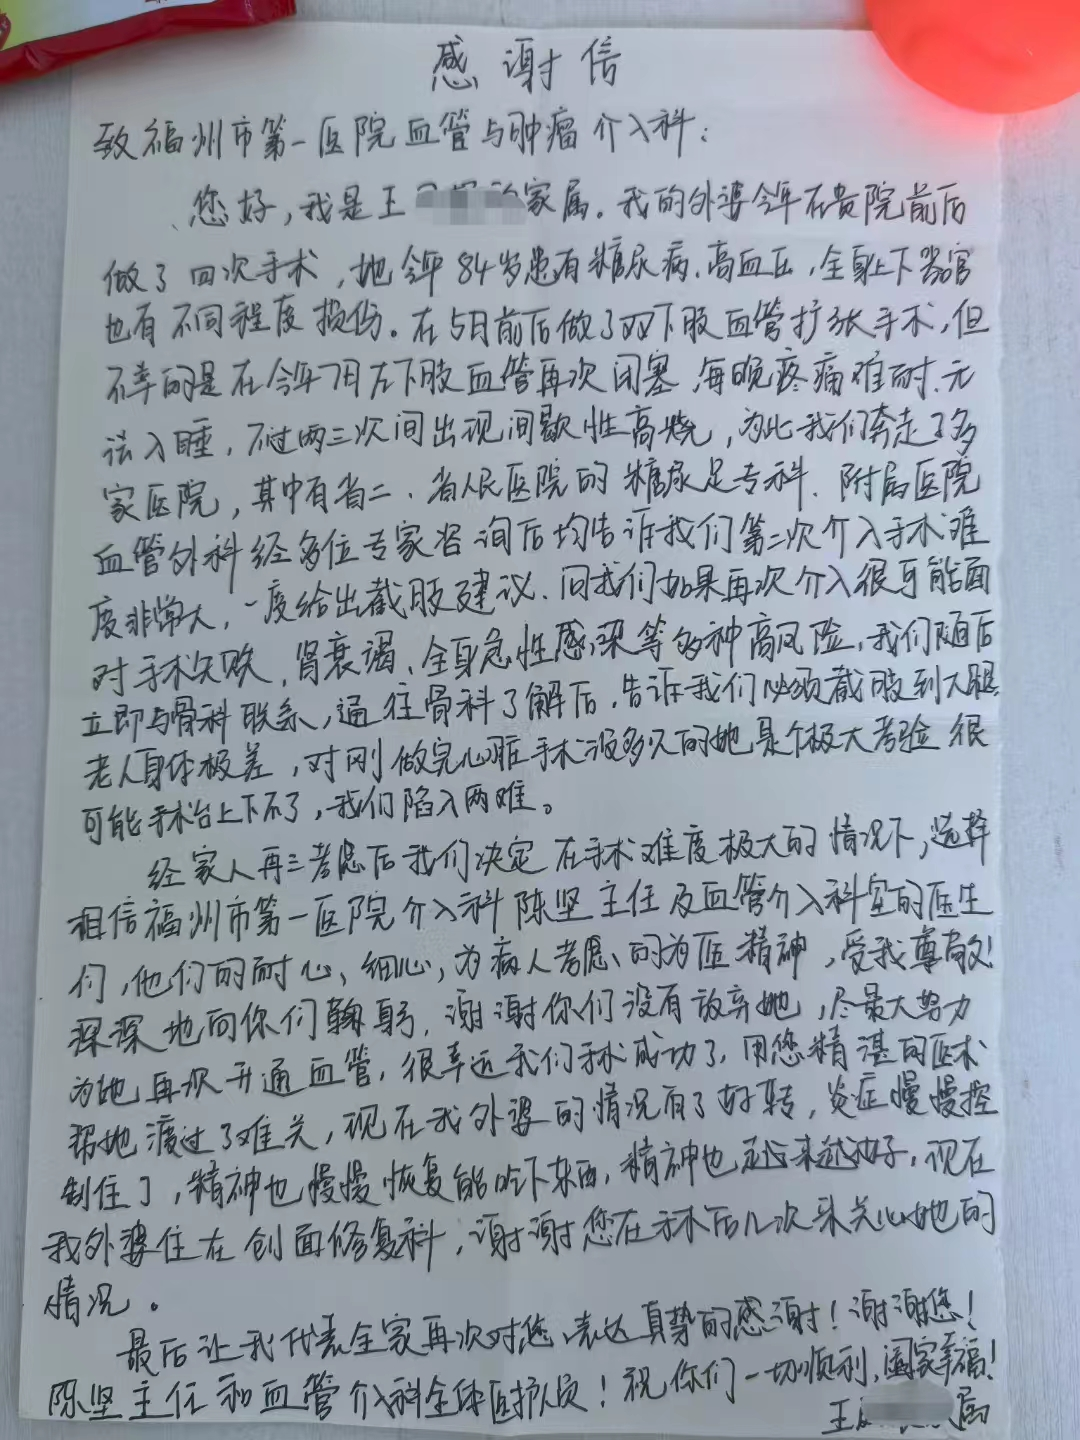 感谢信
致福州市第一医院血管与肿瘤介入科：
您好，我是王 家属。我的外婆今年在贵院前后
做了四次手术，她今年84岁患有糖尿病、高血压，全身上下器官
也有不同程度损伤。在5月前后做了双下肢血管扩张手术，但
不幸的是在今年7月左下肢血管再次闭塞，每晚疼痛难耐、无
法入睡，不过两三次间出现间歇性高烧，为此我们奔走了多
家医院，其中有省二、省人民医院的糖尿足专科、附属医院
血管外科经多位专家咨询后均告诉我们第二次介入手术难
度非常大，一度给出截肢建议、问我们如果再次介入很可能面
对手术失败，肾衰竭、全身急性感染等多种高风险，我们随后
立即与骨科联系，通往骨科了解后，告诉我们必须截肢到大腿，
老人身体极差，对刚做完心脏手术没多久的她是个极大考验 很
可能手术台上下不了，我们陷入两难。
经家人再三考虑后我们决定在手术难度极大的情况下，选择
相信福州市第一医院介入科陈坚主任及血管介入科室的医生
们，他们的耐心、细心，为病人考虑、的为医精神，受我尊敬！
深深地向你们鞠躬，谢谢你们没有放弃她，尽最大努力
为她再次开通血管，很幸运我们手术成功了，用您精湛的医术
帮她渡过了难关，现在我外婆的情况有了好转，炎症慢慢控
制住了，精神也慢慢恢复能吃下东西，精神也越来越好，现在
我外婆住在创面修复科，谢谢您在手术后几次来关心她的
情况。
最后让我代表全家再次对您、表达真挚的感谢！谢谢您！
陈坚主任和血管介入科全体医护人员！祝你们一切顺利，阖家幸福！
王 属